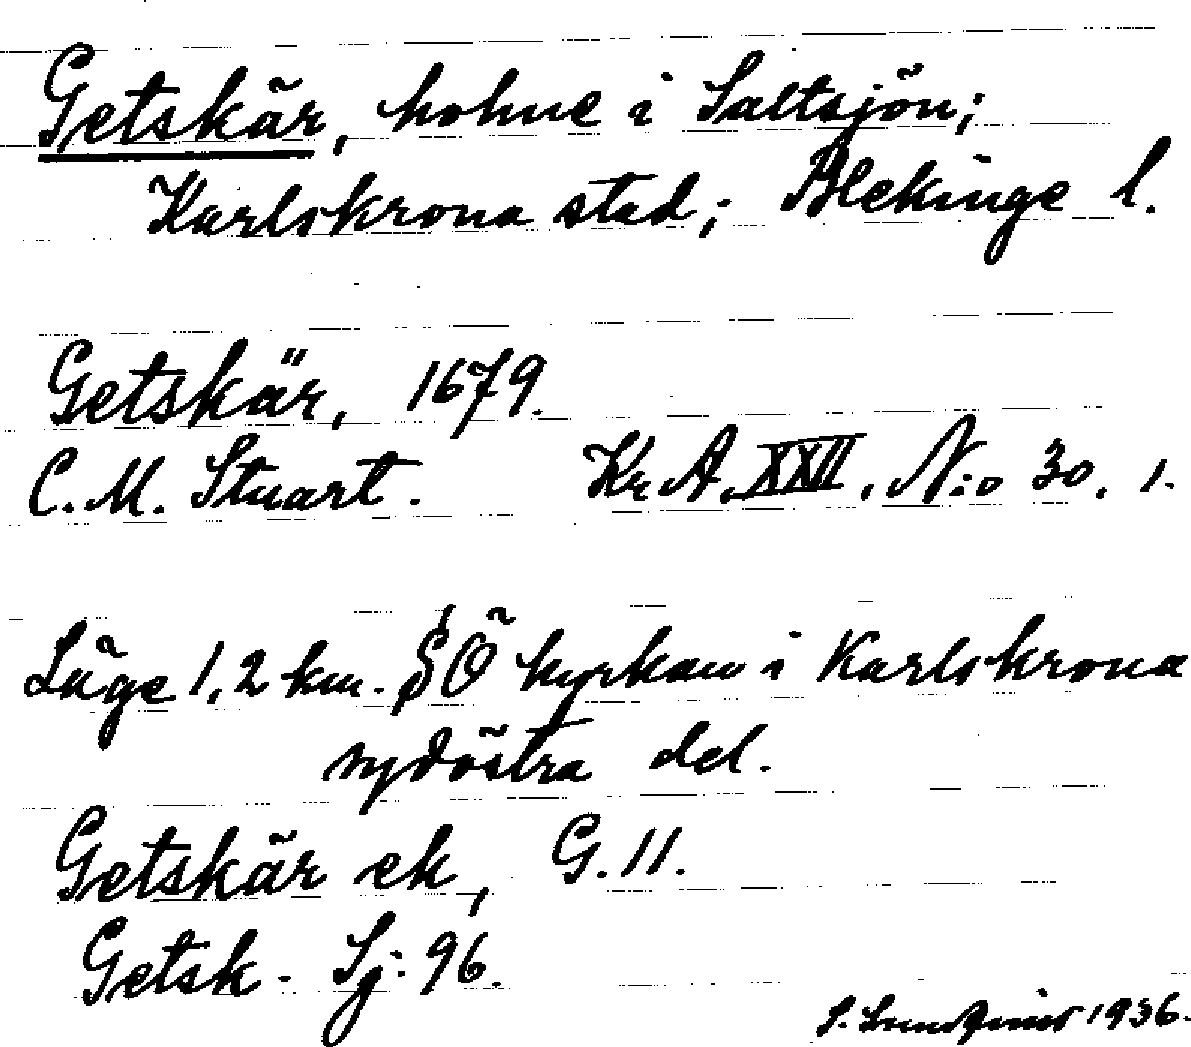 Getskär, holme i Saltsjön;
Karlskrona stad; Blekinge l.
Getskär, 1679.
C. M. Stuart. Kr A. XXII. N:o 30. 1.
Läge 1,2 km. SÖ kyrkan i Karlskrona
sydöstra del.
Getskär ek, G. 11.
Getsk - Sj: 96.
S. 1936.